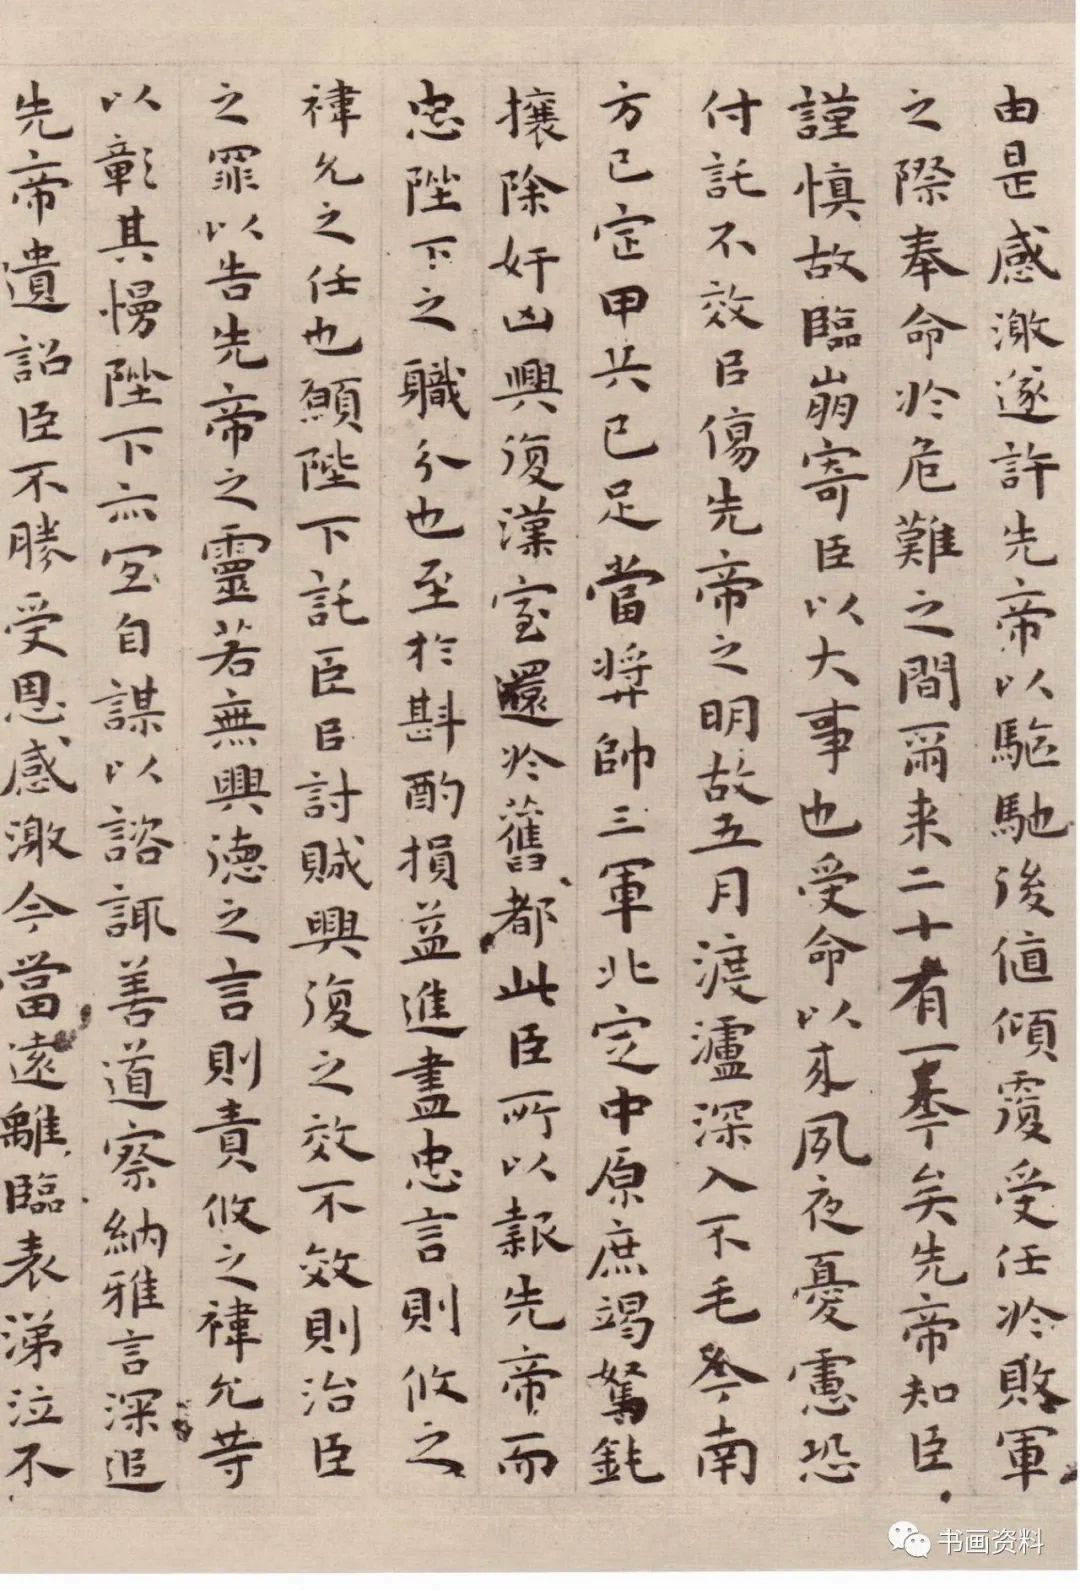 由是感激遂許先帝以驅馳後值傾覆受任於敗軍
之際奉命於危難之間爾来二十有一年矣先帝知臣
謹慎故臨崩寄臣以大事也受命以來夙夜憂慮恐
付託不效以傷先帝之明故五月渡瀘深入不毛今南
方已定甲兵已足當奬帥三軍北定中原庶竭駑鈍
攘除奸凶興復漢室還於舊都此臣所以報先帝而
忠陛下之職分也至於斟酌損益進盡忠言則攸之
禕允之任也願陛下託臣以討賊興復之效不效則治臣
之罪以告先帝之靈若無興德之言則責攸之禕允等
以彰其慢陛下亦宜自謀以諮諏善道察納雅言深追
先帝遺詔臣不勝受恩感激今當遠離臨表涕泣不
书画资料